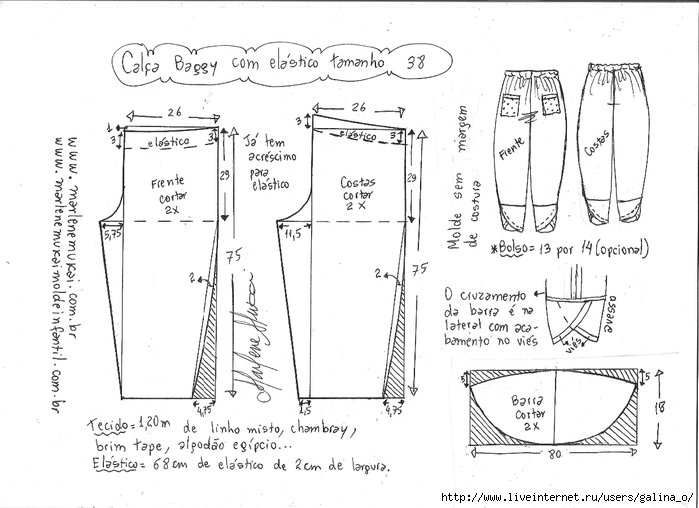 Calça Baggy com elástico tamanho 38
www.marlenemukai.com.br
www.marlenemukaimoldeinfantil.com.br
26
1
3
elástico
3
Frente
cortar
2x
29
5,75
75
2
4,75
Já tem
acréscimo
para
elástico
26
3
elástico
3
Costas
cortar
2x
29
11,5
75
2
1,5
4,75
Marlene Mukai
Molde sem margem
de costura
Frente
Costas
*Bolso=13 por 14 (opcional)
O cruzamento
da barra é na
lateral com aca-
bamento no viés
avesso
viés
3
5
Barra
cortar
2x
18
80
Tecido=1,20m de linho misto, chambray,
brim tape, algodão egípcio...
Elástico= 68cm de elástico de 2cm de largura.
http://www.liveinternet.ru/users/galina_o/